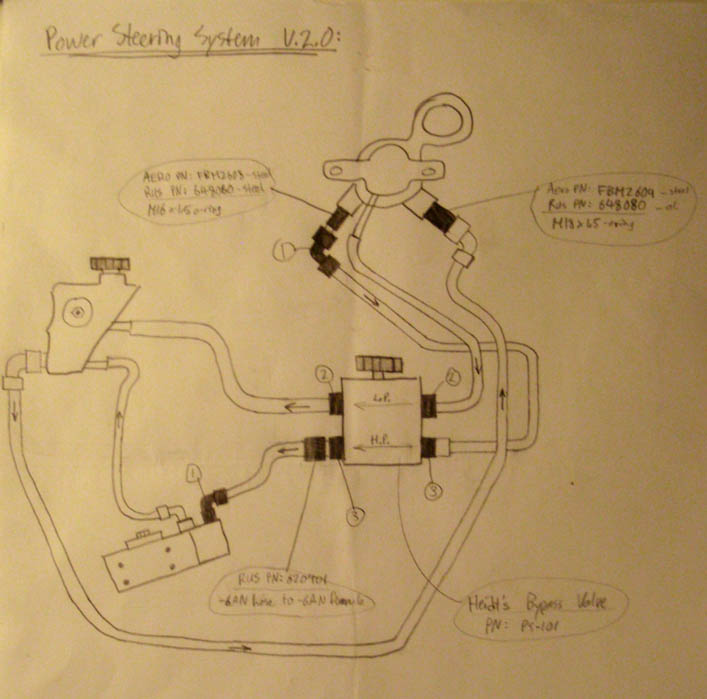 Power Steering System V.2.0:
AERO PN: FBM2603-steel
RUS PN: 648060-steel
M16x1.5 o-ring
Aero PN: FBM2604 -steel
Rus PN: 648080 -al.
M18x1.5-oring
1
2
2
L.P.
H.P.
1
3
3
RUS PN:
-6AN hose to -6AN female
Heidt's Bypass Valve
PN: PS-101